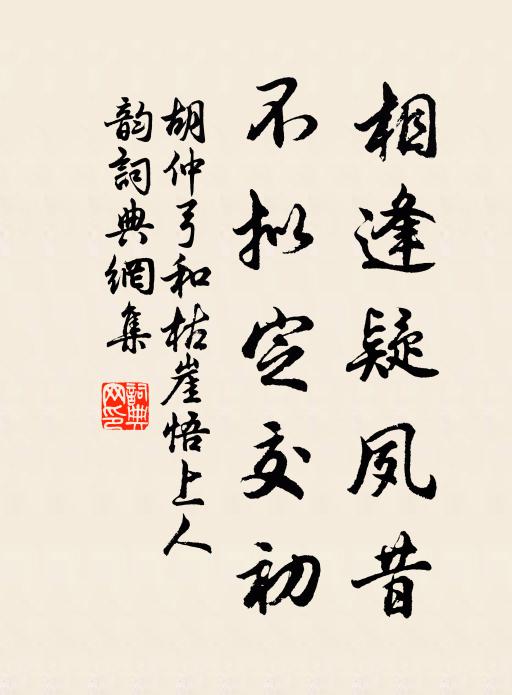 相逢疑夙昔
不拟定交初
胡仲弓和枯崖悟上人
韵詞典網集
詞典
网印